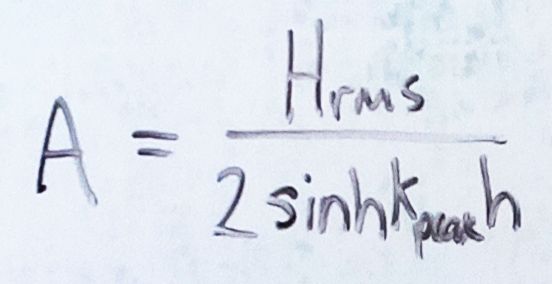 A = H_rms / (2 sinh k_peak h)